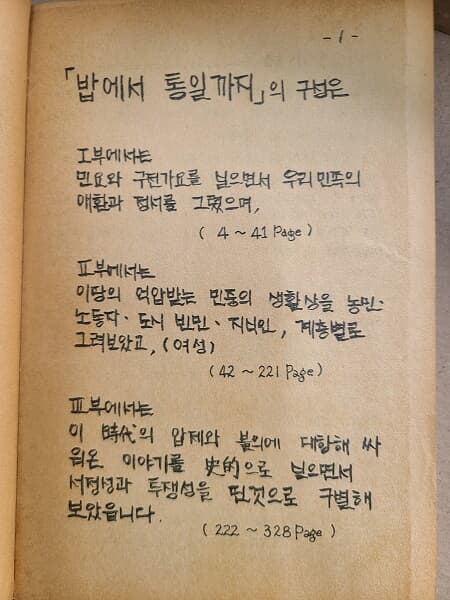 - 1 -
「밥에서 통일까지」의 구성은
I부에서는
민요와 구전가요를 넣으면서 우리민족의
애환과 정서를 그렸으며,
( 4 ~ 41 Page )
II부에서는
이땅의 억압받는 민중의 생활상을 농민·
노동자·도시 빈민·지식인, 계층별로
그려보았고, (여성)
(42 ~ 221 Page)
III부에서는
이 時代의 압제와 불의에 대항해 싸
워온 이야기를 史的으로 넣으면서
서정성과 투쟁성을 띤것으로 구별해
보았읍니다.
(222 ~ 328 Page)